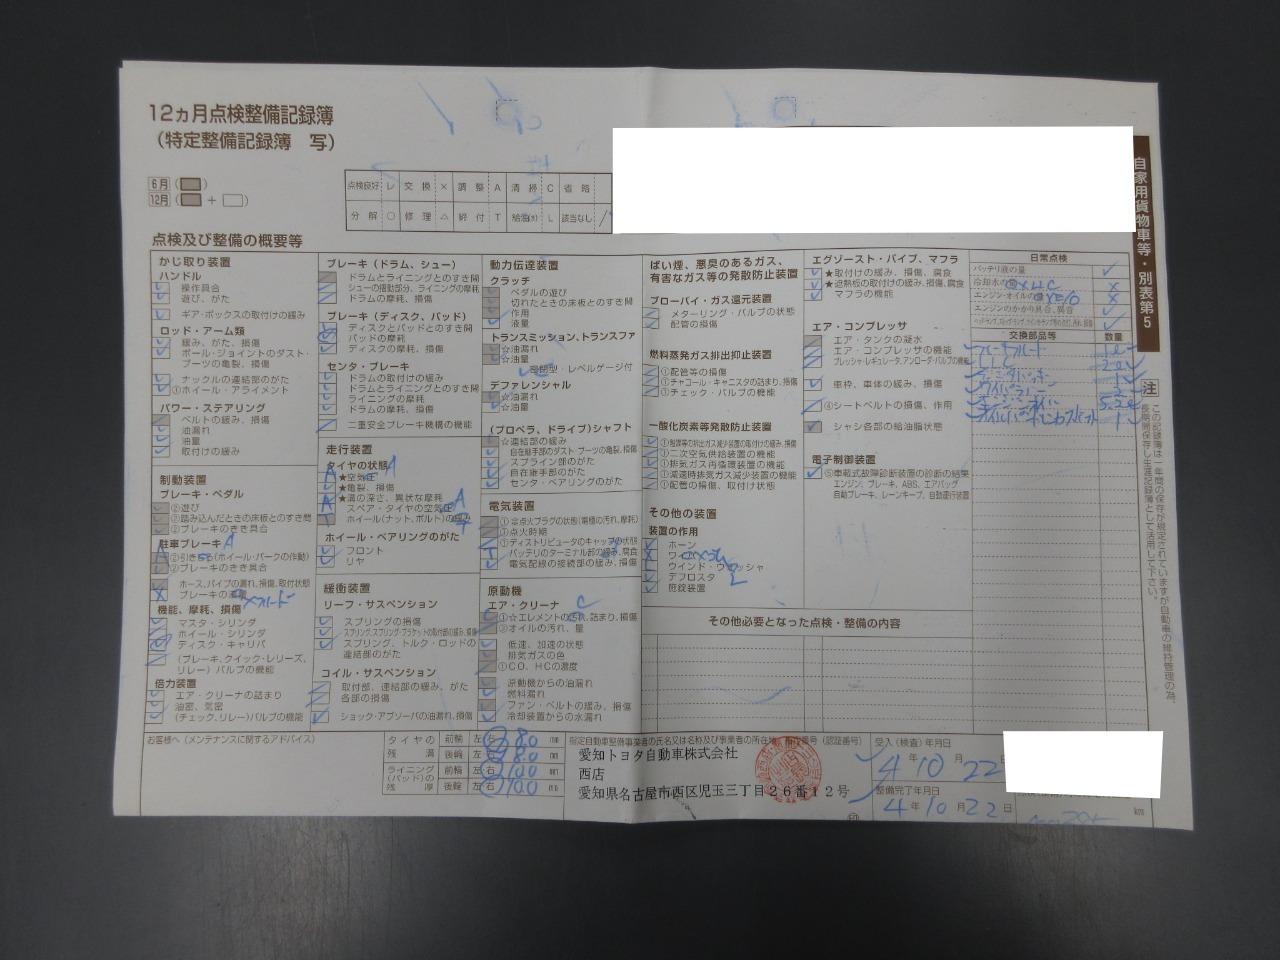 12ヵ月点検整備記録簿
(特定整備記録簿 写)
6月
12月 +
点検良好 レ 交換 × 調整 A 清掃 C 省略
分解 ○ 修理 △ 締付 T 給油(水) L 該当なし /
自家用貨物車等・別表第5
点検及び整備の概要等
かじ取り装置
ハンドル
操作具合
遊び、がた
ギア・ボックスの取付の緩み
ロッド・アーム類
緩み、がた、損傷
ボール・ジョイントのダスト・
ブーツの亀裂、損傷
ナックルの連結部のがた
①ホイール・アライメント
パワー・ステアリング
ベルトの緩み、損傷
油漏れ
油量
取付けの緩み
制動装置
ブレーキ・ペダル
②遊び
②踏み込んだときの床板とのすき間
②ブレーキのきき具合
駐車ブレーキ A
②引きしろ(ホイール・パークの作動)
②ブレーキのきき具合
ホース、パイプの漏れ、損傷、取付状態
ブレーキの液量
機能、摩耗、損傷
マスタ・シリンダ
ホイール・シリンダ
ディスク・キャリパ
(ブレーキ、クイック・レリーズ、
リレー)バルブの機能
倍力装置
エア・クリーナの詰まり
油密、気密
(チェック、リレー)バルブの機能
ブレーキ(ドラム、シュー)
ドラムとライニングとのすき間
シューの摺動部分、ライニングの摩耗
ドラムの摩耗、損傷
ブレーキ(ディスク、パッド)
ディスクとパッドとのすき間
パッドの摩耗
ディスクの摩耗、損傷
センタ・ブレーキ
ドラムの取付けの緩み
ドラムとライニングとのすき間
ライニングの摩耗
ドラムの摩耗、損傷
二重安全ブレーキ機構の機能
走行装置
タイヤの状態 A
★空気圧
★亀裂、損傷
★溝の深さ、異状な摩耗
スペア・タイヤの空気圧 A
ホイール(ナット、ボルト)の緩み
ホイール・ベアリングのがた
フロント
リヤ
緩衝装置
リーフ・サスペンション
スプリングの損傷
スプリング、スプリング・ブラケットの取付部の緩み、損傷
スプリング、トルク・ロッドの
連結部のがた
コイル・サスペンション
取付部、連結部の緩み、がた
各部の損傷
ショック・アブソーバの油漏れ、損傷
動力伝達装置
クラッチ
ペダルの遊び
切れたときの床板とのすき間
作用
液量
トランスミッション、トランスファ
☆油漏れ
☆油量
密閉型・レベルゲージ付
デファレンシャル
☆油漏れ
☆油量
(プロペラ、ドライブ)シャフト
☆連結部の緩み
自在継手部のダスト・ブーツの亀裂、損傷
スプライン部のがた
自在継手部のがた
センタ・ベアリングのがた
電気装置
①☆点火プラグの状態(電極の汚れ、摩耗)
①点火時期
①ディストリビュータのキャップの状態
バッテリのターミナル部の緩み、腐食
電気配線の接続部の緩み、損傷
原動機
エア・クリーナ C
①☆エレメントの汚れ、詰まり、損傷
②オイルの汚れ、量
低速、加速の状態
排気ガスの色
①CO、HCの濃度
原動機からの油漏れ
燃料漏れ
ファン・ベルトの緩み、損傷
冷却装置からの水漏れ
ばい煙、悪臭のあるガス、
有害なガス等の発散防止装置
ブローバイ・ガス還元装置
メターリング・バルブの状態
配管の損傷
燃料蒸発ガス排出抑止装置
①配管等の損傷
①チャコール・キャニスタの詰まり、損傷
①チェック・バルブの機能
一酸化炭素等発散防止装置
①触媒等の排出ガス減少装置の取付けの緩み、損傷
①二次空気供給装置の機能
①排気ガス再循環装置の機能
①減速時排気ガス減少装置の機能
①配管の損傷、取付け状態
その他の装置
装置の作用
ホーン
ワイパ
ウインド・ウォッシャ
デフロスタ
施錠装置
エグゾースト・パイプ、マフラ
★取付けの緩み、損傷、腐食
★遮熱板の取付けの緩み、損傷、腐食
マフラの機能
エア・コンプレッサ
エア・タンクの凝水
エア・コンプレッサの機能
プレッシャ・レギュレータ、アンローダ・バルブの機能
車枠、車体の緩み、損傷
④シートベルトの損傷、作用
シャシ各部の給油脂状態
電子制御装置
⑤車載式故障診断装置の診断の結果
エンジン、ブレーキ、ABS、エアバッグ
自動ブレーキ、レーンキープ、自動運行装置
その他必要となった点検・整備の内容
日常点検
バッテリ液の量
冷却水の量
エンジン・オイルの量
エンジンのかかり具合、異音
交換部品等 数量
注 この記録簿は一年間の保存が規定されていますが自動車の維持管理の為、
長期間保存し生涯記録簿として活用して下さい。
お客様へ(メンテナンスに関するアドバイス)
タイヤの残溝 前輪 左 右 8.0 mm
後輪 左 右 8.0 mm
ライニング(パッド)の残厚 前輪 左 右 10.0 mm
後輪 左 右 10.0 mm
愛知トヨタ自動車株式会社
西店
愛知県名古屋市西区児玉三丁目26番12号
受入(検査)年月日
4年10月22日
整備完了年月日
4年10月22日
km